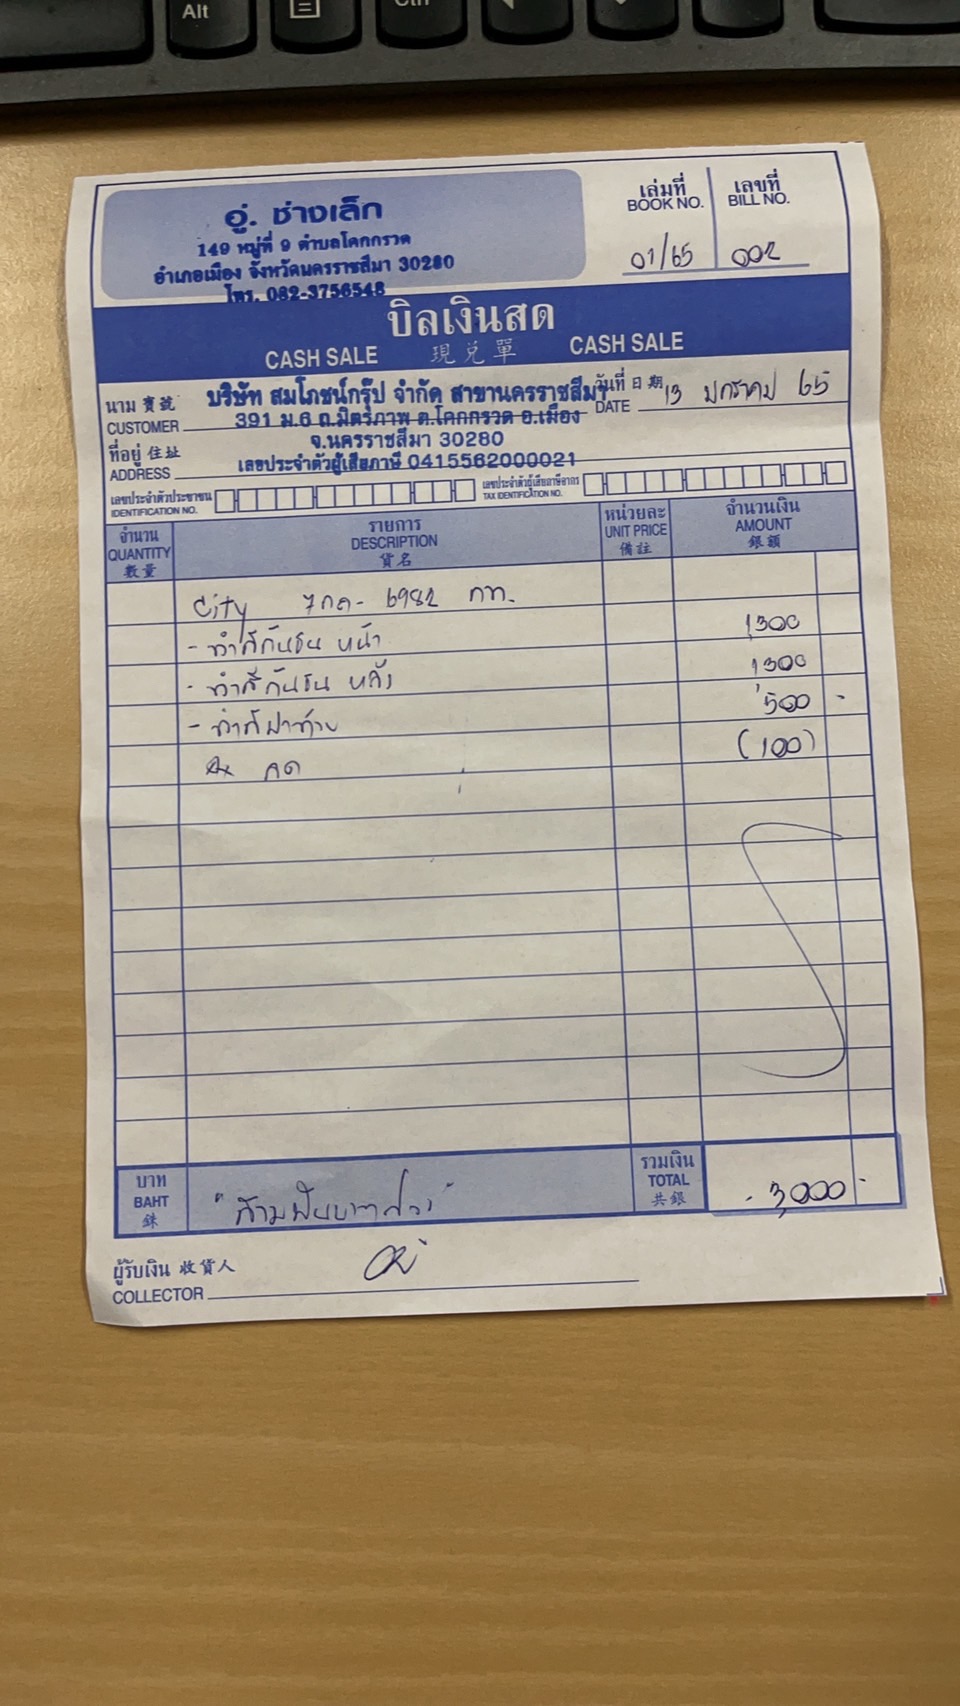 Alt
Ctrl
อู่. ช่างเล็ก
149 หมู่ที่ 9 ตำบลโคกกรวด
อำเภอเมือง จังหวัดนครราชสีมา 30280
โทร. 082-3756548
เล่มที่ เลขที่
BOOK NO. BILL NO.
01/65 002
บิลเงินสด
CASH SALE 現兌單 CASH SALE
นาม 寶號 บริษัท สมโภชน์กรุ๊ป จำกัด สาขานครราชสีมา วันที่ 日期 13 มกราคม 65
CUSTOMER 391 ม.6 ถ.มิตรภาพ ต.โคกกรวด อ.เมือง DATE
ที่อยู่ 住址 จ.นครราชสีมา 30280
ADDRESS เลขประจำตัวผู้เสียภาษี 0415562000021
เลขประจำตัวประชาชน เลขประจำตัวผู้เสียภาษีอากร
IDENTIFICATION NO. TAX IDENTIFICATION NO.
จำนวน รายการ หน่วยละ จำนวนเงิน
QUANTITY DESCRIPTION UNIT PRICE AMOUNT
數量 貨名 備註 銀額
City 7กด - 6982 กท.
- ทำสีกันชน หน้า 1,300
- ทำสีกันชน หลัง 1300
- ทำสีฝาท้าย 500 -
ลด (100)
บาท รวมเงิน
BAHT "สามพันบาทถ้วน" TOTAL - 3,000 -
銖 共銀
ผู้รับเงิน 收貨人
COLLECTOR